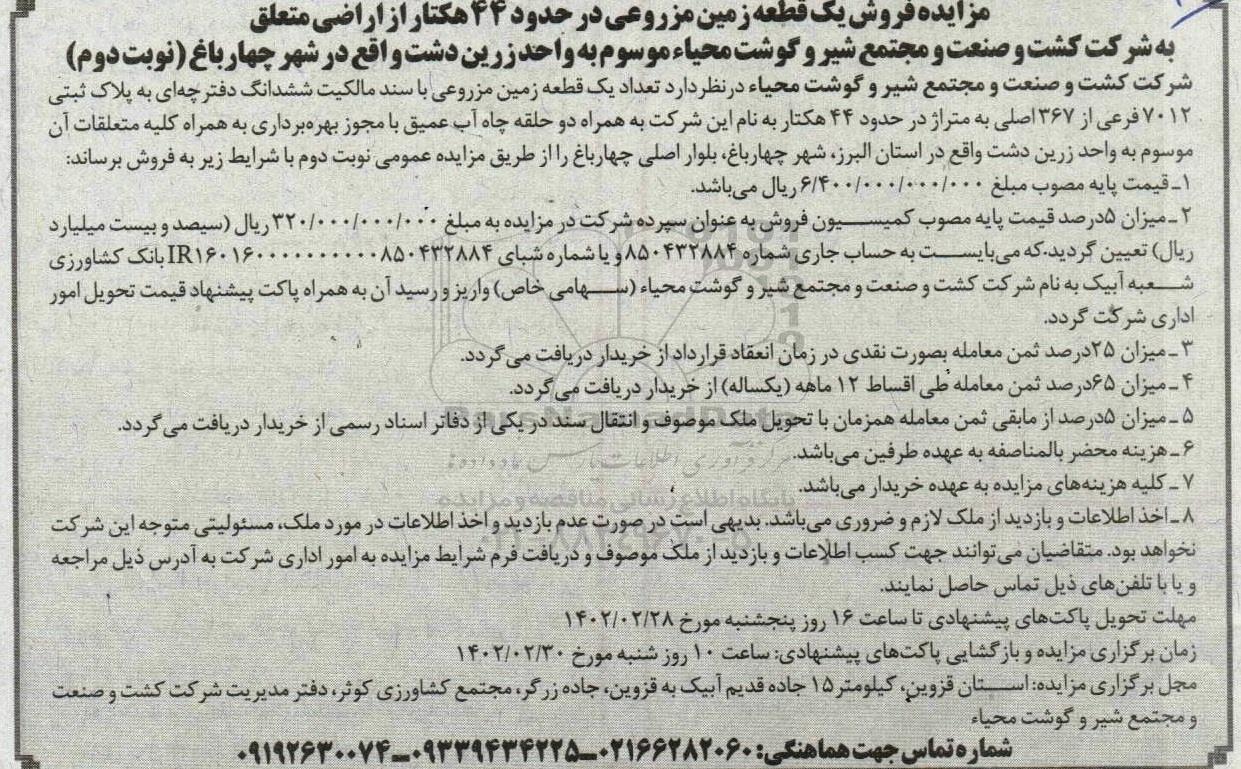 مزایده فروش یک قطعه زمین مزروعی در حدود ۴۴ هکتار از اراضی متعلق
به شرکت کشت و صنعت و مجتمع شیر و گوشت محیاء موسوم به واحد زرین دشت واقع در شهر چهارباغ (نوبت دوم)
شرکت کشت و صنعت و مجتمع شیر و گوشت محیاء در نظر دارد تعداد یک قطعه زمین مزروعی با سند مالکیت ششدانگ دفترچه‌ای به پلاک ثبتی
۷۰۱۲ فرعی از ۳۶۷ اصلی به متراژ در حدود ۴۴ هکتار به نام این شرکت به همراه دو حلقه چاه آب عمیق با مجوز بهره‌برداری به همراه کلیه متعلقات آن
موسوم به واحد زرین دشت واقع در استان البرز، شهر چهارباغ، بلوار اصلی چهارباغ را از طریق مزایده عمومی نوبت دوم با شرایط زیر به فروش برساند:
۱ـ قیمت پایه مصوب مبلغ ۶/۴۰۰/۰۰۰/۰۰۰/۰۰۰ ریال می‌باشد.
۲ـ میزان ۵درصد قیمت پایه مصوب کمیسیون فروش به عنوان سپرده شرکت در مزایده به مبلغ ۳۲۰/۰۰۰/۰۰۰/۰۰۰ ریال (سیصد و بیست میلیارد
ریال) تعیین گردید.که می‌بایست به حساب جاری شماره ۸۵۰۴۳۲۸۸۴ و یا شماره شبای IR۱۶۰۱۶۰۰۰۰۰۰۰۰۰۰۰۸۵۰۴۳۲۸۸۴ بانک کشاورزی
شعبه آبیک به نام شرکت کشت و صنعت و مجتمع شیر و گوشت محیاء (سهامی خاص) واریز و رسید آن به همراه پاکت پیشنهاد قیمت تحویل امور
اداری شرکت گردد.
۳ـ میزان ۲۵درصد ثمن معامله بصورت نقدی در زمان انعقاد قرارداد از خریدار دریافت می‌گردد.
۴ـ میزان ۶۵درصد ثمن معامله طی اقساط ۱۲ ماهه (یکساله) از خریدار دریافت می‌گردد.
۵ـ میزان ۵درصد از مابقی ثمن معامله همزمان با تحویل ملک موصوف و انتقال سند در یکی از دفاتر اسناد رسمی از خریدار دریافت می‌گردد.
۶ـ هزینه محضر بالمناصفه به عهده طرفین می‌باشد.
۷ـ کلیه هزینه‌های مزایده به عهده خریدار می‌باشد.
۸ـ اخذ اطلاعات و بازدید از ملک لازم و ضروری می‌باشد. بدیهی است در صورت عدم بازدید و اخذ اطلاعات در مورد ملک، مسئولیتی متوجه این شرکت
نخواهد بود. متقاضیان می‌توانند جهت کسب اطلاعات و بازدید از ملک موصوف و دریافت فرم شرایط مزایده به امور اداری شرکت به آدرس ذیل مراجعه
و یا با تلفن‌های ذیل تماس حاصل نمایند.
مهلت تحویل پاکت‌های پیشنهادی تا ساعت ۱۶ روز پنجشنبه مورخ ۱۴۰۲/۰۲/۲۸
زمان برگزاری مزایده و بازگشایی پاکت‌های پیشنهادی: ساعت ۱۰ روز شنبه مورخ ۱۴۰۲/۰۲/۳۰
محل برگزاری مزایده: استان قزوین، کیلومتر ۱۵ جاده قدیم آبیک به قزوین، جاده زرگر، مجتمع کشاورزی کوثر، دفتر مدیریت شرکت کشت و صنعت
و مجتمع شیر و گوشت محیاء
شماره تماس جهت هماهنگی: ۰۲۱۶۶۲۸۲۰۶۰ـ۰۹۳۳۹۴۳۴۲۲۵ـ۰۹۱۹۲۶۳۰۰۷۴